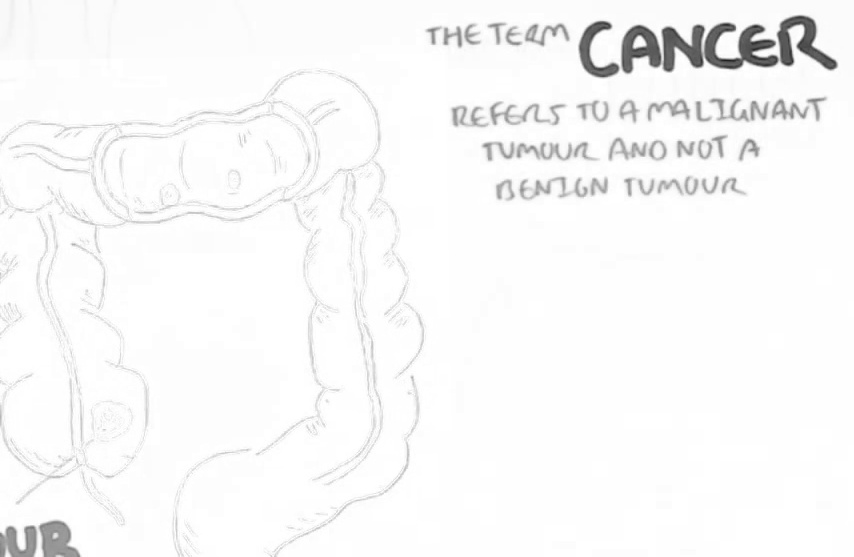 THE TERM CANCER
REFERS TO A MALIGNANT
TUMOUR AND NOT A
BENIGN TUMOUR
OUR